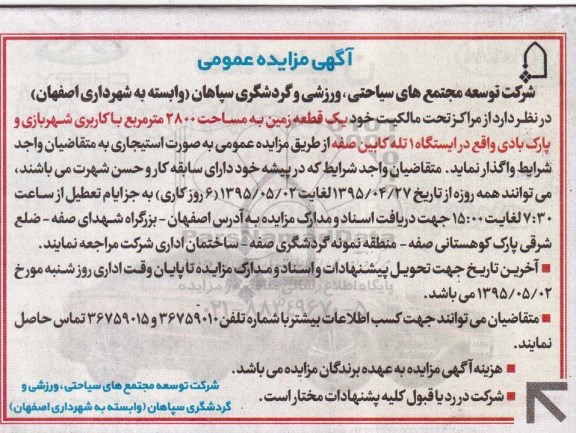 آگهی مزایده عمومی
شرکت توسعه مجتمع های سیاحتی، ورزشی و گردشگری سپاهان (وابسته به شهرداری اصفهان)
در نظر دارد از مراکز تحت مالکیت خود یک قطعه زمین به مساحت ۲۸۰۰ مترمربع با کاربری شهربازی و
پارک بادی واقع در ایستگاه ۱ تله کابین صفه از طریق مزایده عمومی به صورت استیجاری به متقاضیان واجد
شرایط واگذار نماید. متقاضیان واجد شرایط که در پیشه خود دارای سابقه کار و حسن شهرت می باشند،
می توانند همه روزه از تاریخ ۱۳۹۵/۰۴/۲۷ لغایت ۱۳۹۵/۰۵/۰۲ (۶ روز کاری) به جز ایام تعطیل از ساعت
۷:۳۰ لغایت ۱۵:۰۰ جهت دریافت اسناد و مدارک مزایده به آدرس اصفهان - بزرگراه شهدای صفه - ضلع
شرقی پارک کوهستانی صفه - منطقه نمونه گردشگری صفه - ساختمان اداری شرکت مراجعه نمایند.
■ آخرین تاریخ جهت تحویل پیشنهادات و اسناد و مدارک مزایده تا پایان وقت اداری روز شنبه مورخ
۱۳۹۵/۰۵/۰۲ می باشد.
■ متقاضیان می توانند جهت کسب اطلاعات بیشتر با شماره تلفن ۳۶۷۵۹۰۱۰ و ۳۶۷۵۹۰۱۵ تماس حاصل
نمایند.
■ هزینه آگهی مزایده به عهده برندگان مزایده می باشد.
■ شرکت در رد یا قبول کلیه پیشنهادات مختار است.
شرکت توسعه مجتمع های سیاحتی، ورزشی و
گردشگری سپاهان (وابسته به شهرداری اصفهان)